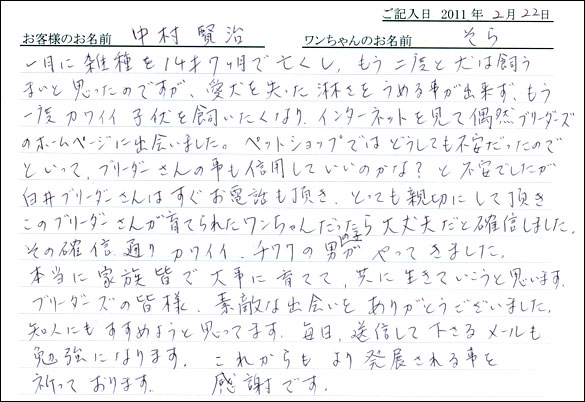 ご記入日 2011 年 2月 22日
お客様のお名前 中村 賢治 ワンちゃんのお名前 そら
一月に 雑種を 14才7ヶ月で亡くし、もう 二度と 犬は飼う
まいと思ったのですが、愛犬を失った 淋さを うめる事が出来ず、もう
一度 カワイイ 子犬を飼いたくなり、インターネットを見て偶然ブリーダーズ
のホームページに出会いました。ペットショップでは どうしても不安だったので
といって、ブリーダーさんの事も信用していいのかな? と 不安でしたが
白井ブリーダーさんは すぐ お電話も頂き、とっても親切にして頂き
このブリーダーさんが育てられたワンちゃんだったら 大丈夫だと確信しました。
その確信通り カワイイ、チワワの 男の子が やって きました。
本当に 家族 皆で 大事に 育てて、共に 生きていこうと思います。
ブリーダーズの皆様、素敵な出会いを ありがとうございました。
知人にも すすめようと思ってます。毎日、送信して下さるメールも
勉強になります。 これからも より 発展される事を
祈っております。 感謝です。